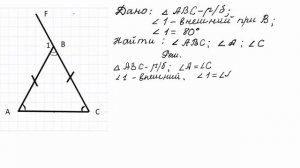 F
1
B
A
C
Дано: △ ABC - р/б;
∠1 - внешний при B;
∠1 = 80°
Найти: ∠ABC; ∠A; ∠C
Реш.
△ ABC - р/б; ∠A=∠C
∠1 - внешний, ∠1=∠